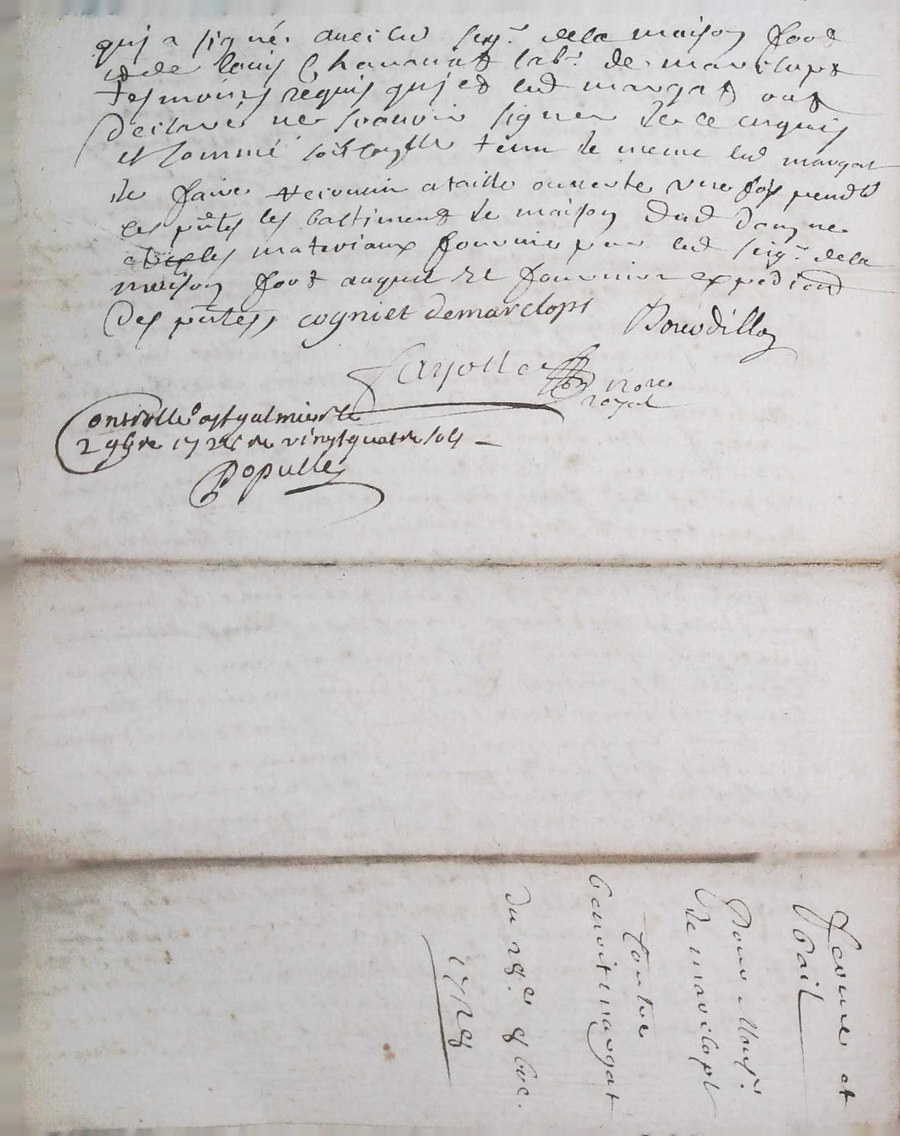 qui a signé avec led siegr. de la maison fort
et de Louis Chavanat lab.r de marclopt
tesmoins requis qui et led margat ont
declaré ne scavoir signer de ce enquis
et sommé tenu le meme led margat
de faire recouvrir a taille ouverte une fois pendt
les pntes les bastiments de maison dud
et les materiaux fournis par led sieg.r de la
maison fort auquel fournira expedition
des pntes, cogniet de marclopt Bourdillon
Fayolle Nore royal
Controllé a st galmier le
2 9bre 1728 Re vingt quatre sols
Populle
Ferme et
bail
Pour Monsr.
de marclopt
Contre
benoit margat
du 28e 8bre.
1728